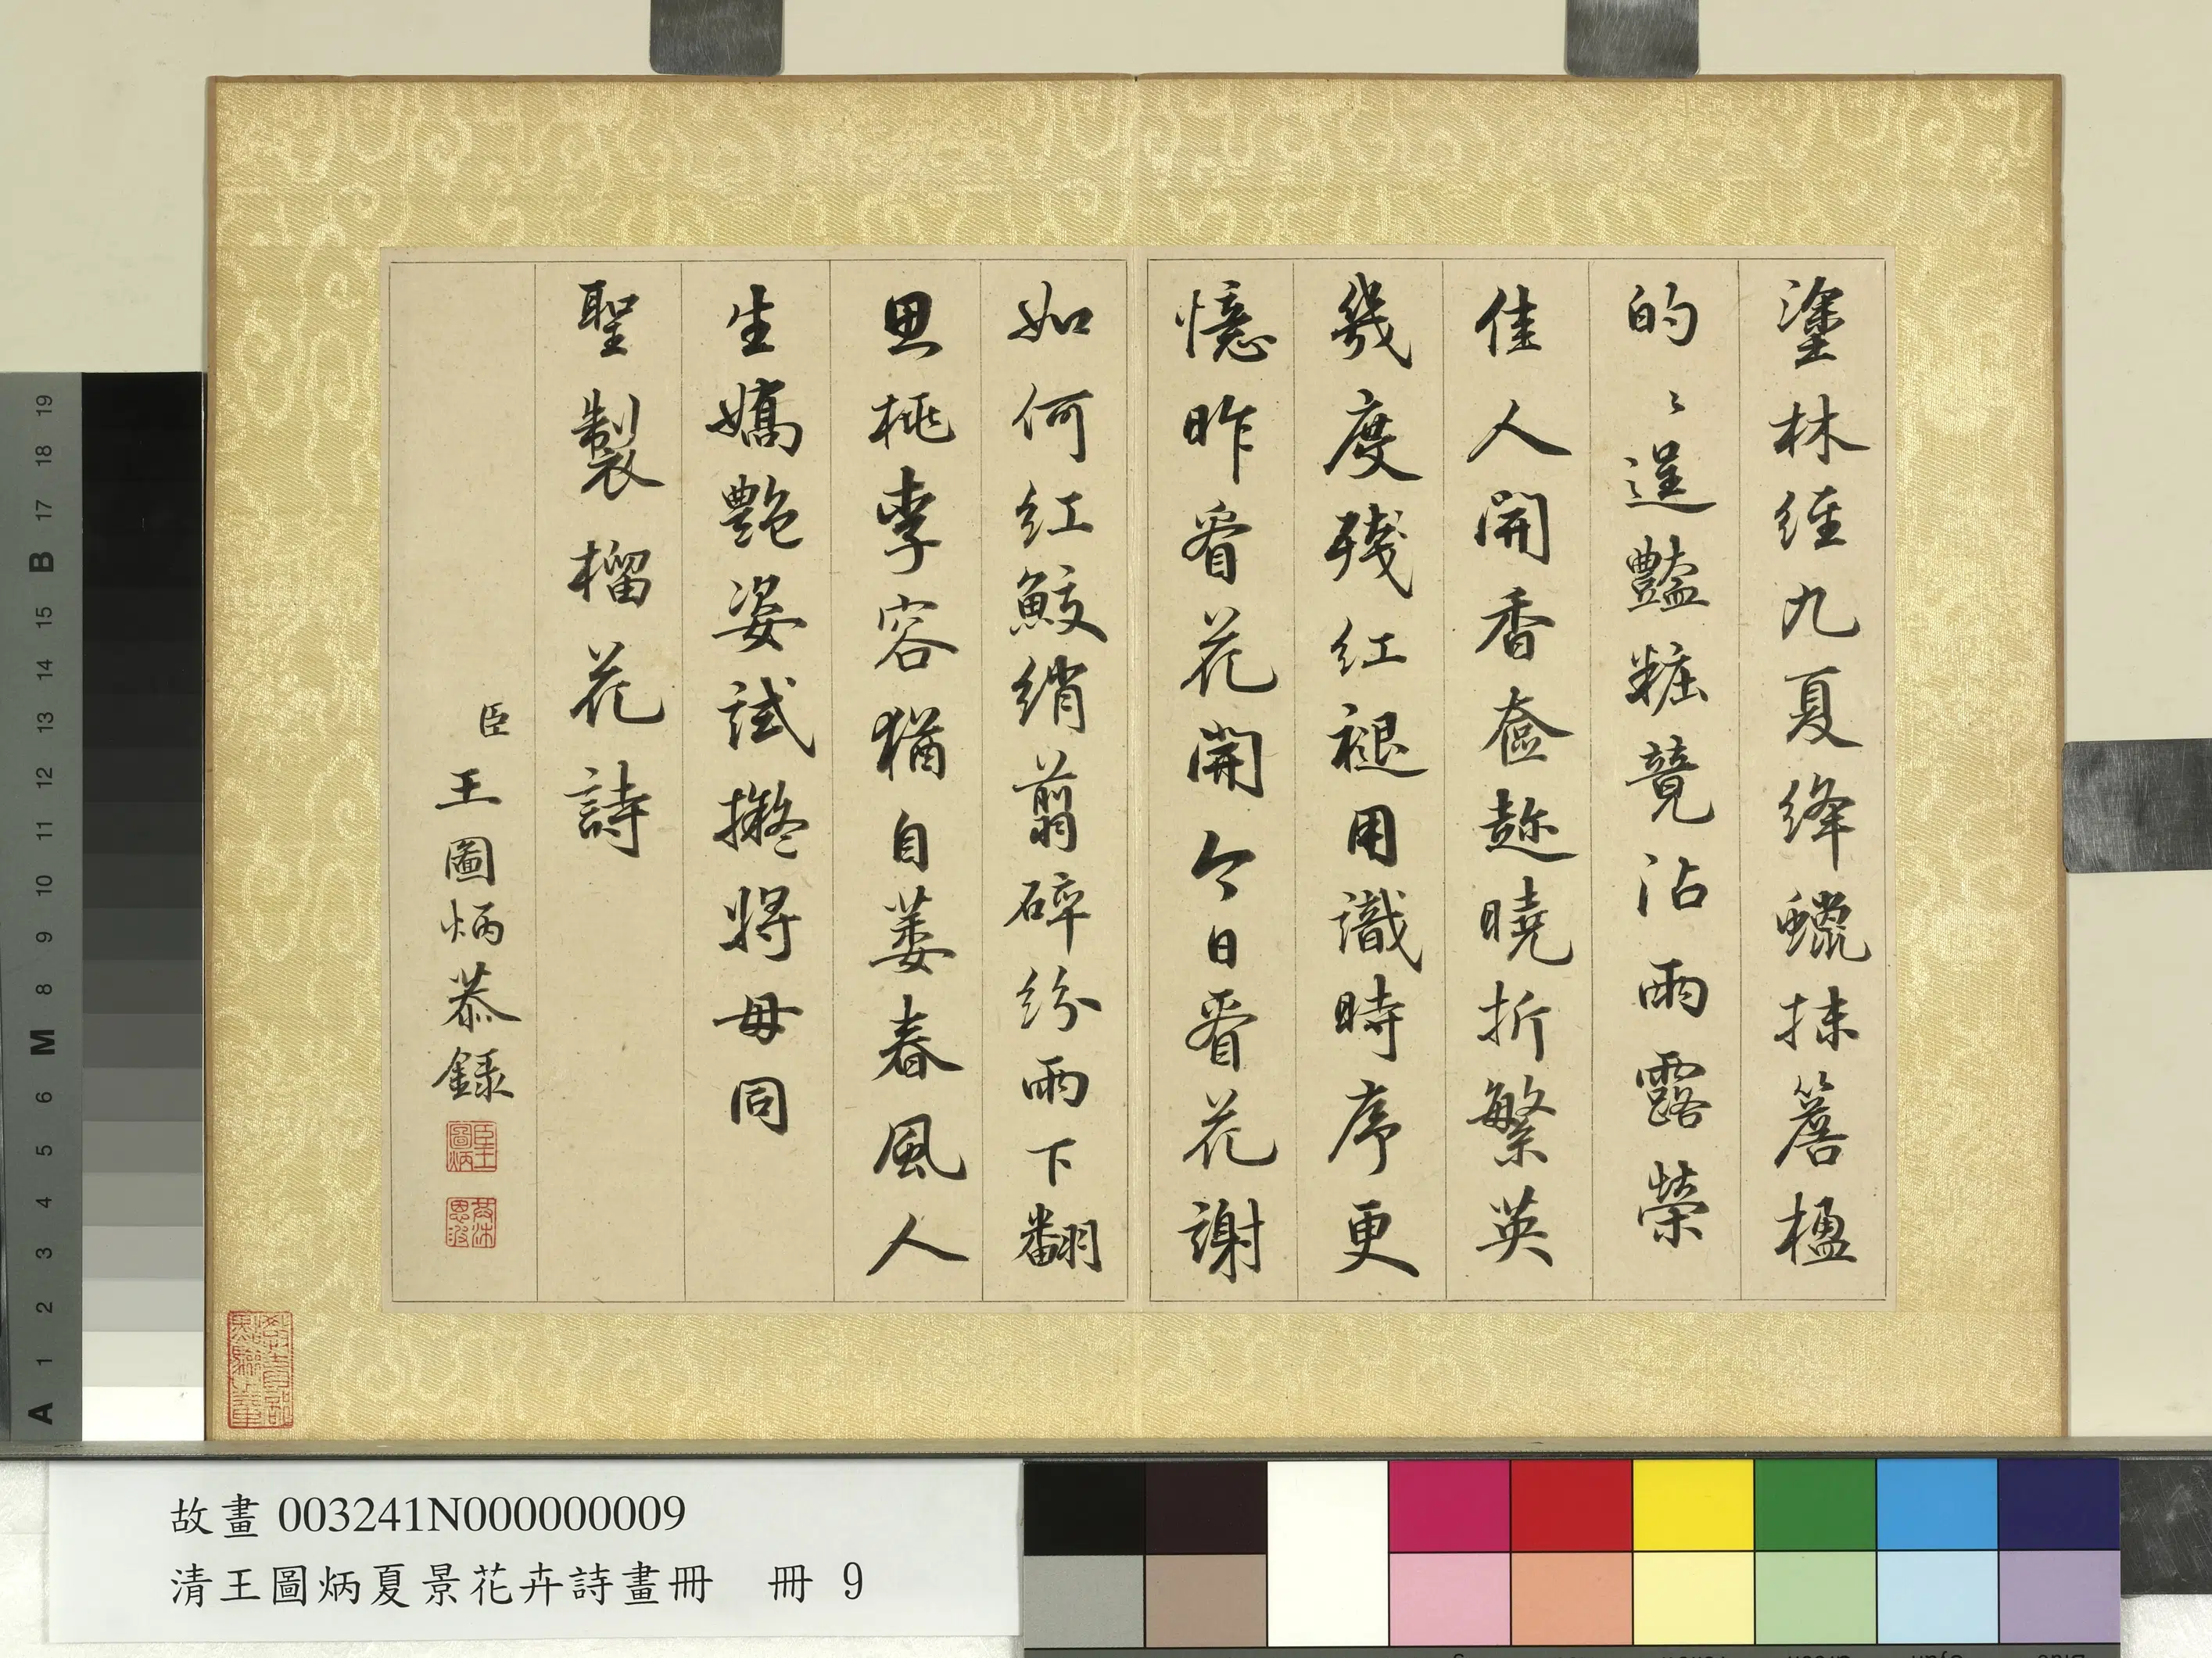 塗林經九夏絳蠟抹簷楹
的〻逞豔粧競沾雨露榮
佳人開香奩趂曉折繁英
幾度殘紅褪用識時序更
憶昨看花開今日看花謝
如何紅鮫綃翦碎紛雨下翻
思桃李容猶自萎春風人
生嬌艷姿試擬將毋同
聖製榴花詩
臣王圖炳恭錄
臣王圖炳
故畫003241N000000009
清王圖炳夏景花卉詩畫冊 冊 9
A 1 2 3 4 5 6 M 8 9 10 11 12 13 14 15 B 17 18 19